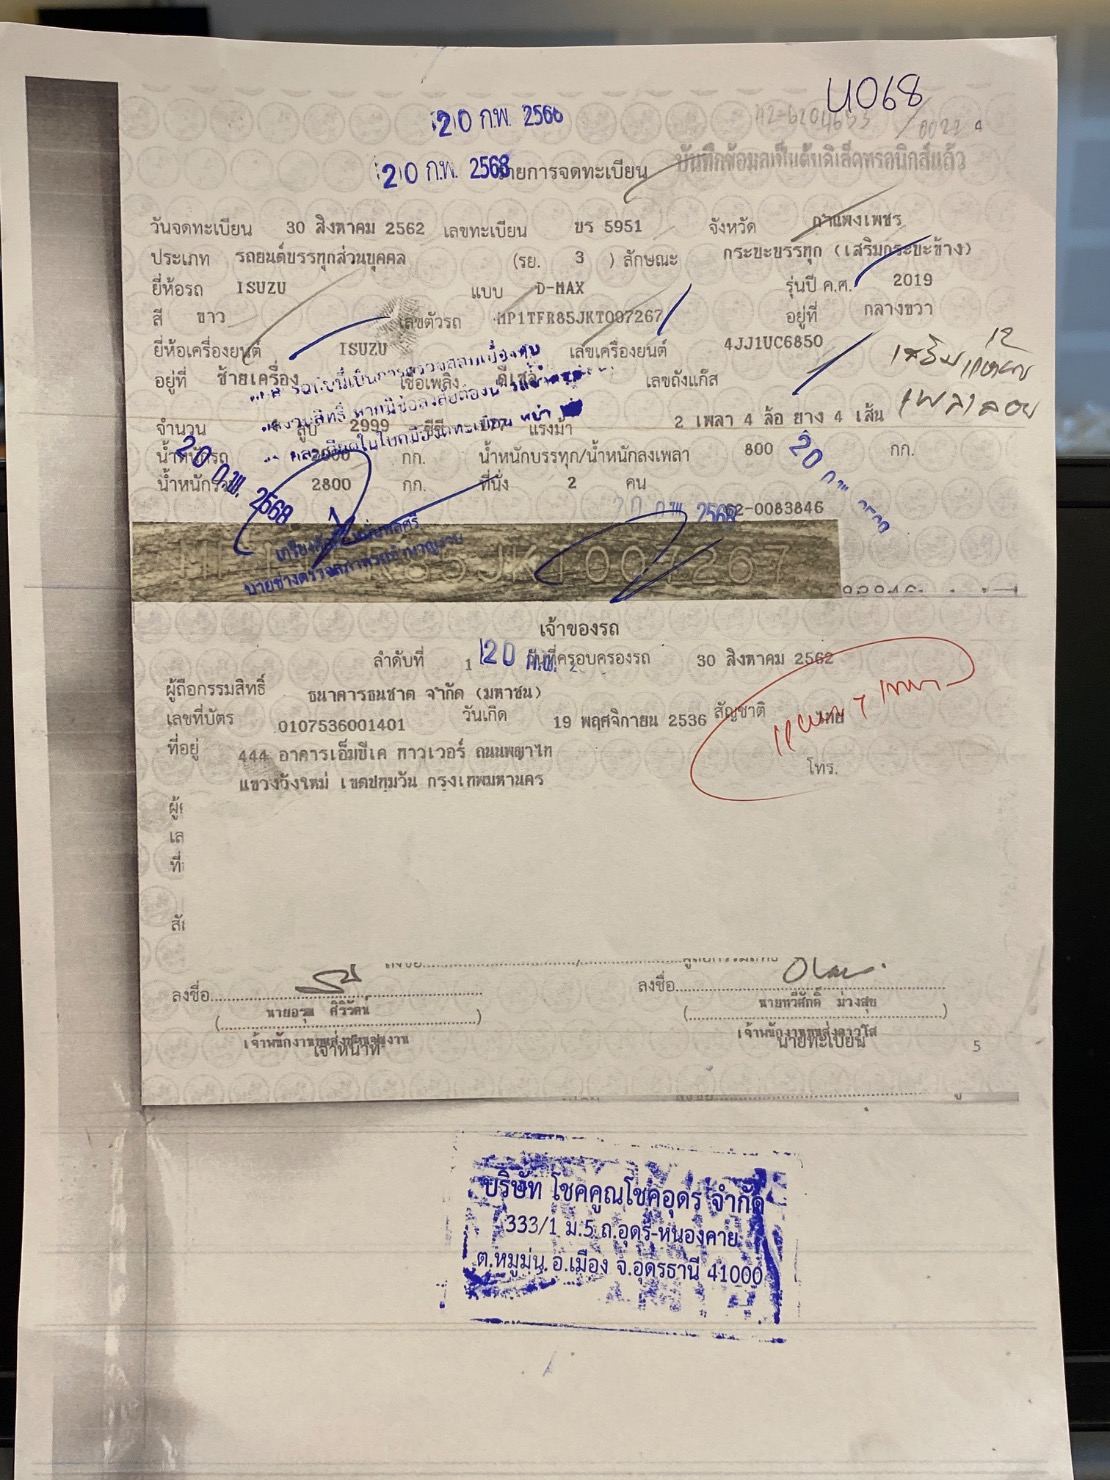 4068
20 ก.พ. 2568
4
20 ก.พ. 2568 รายการจดทะเบียน บันทึกข้อมูลเป็นต้นดิเล็คทรอนิกส์แล้ว
วันจดทะเบียน 30 สิงหาคม 2562 เลขทะเบียน ขร 5951 จังหวัด กำแพงเพชร
ประเภท รถยนต์บรรทุกส่วนบุคคล (รย. 3 ) ลักษณะ กระบะบรรทุก (เสริมกระบะข้าง)
ยี่ห้อรถ ISUZU แบบ D-MAX รุ่นปี ค.ศ. 2019
สี ขาว เลขตัวรถ MP1TFR85JKT007267 อยู่ที่ กลางขวา
ยี่ห้อเครื่องยนต์ ISUZU เลขเครื่องยนต์ 4JJ1UC6850
อยู่ที่ ซ้ายเครื่อง เชื้อเพลิง ดีเซล เลขถังแก๊ส
จำนวน สูบ 2999 ซีซี แรงม้า 2 เพลา 4 ล้อ ยาง 4 เส้น
น้ำหนักรถ 2000 กก. น้ำหนักบรรทุก/น้ำหนักลงเพลา 800 กก.
น้ำหนักรวม 2800 กก. ที่นั่ง 2 คน
20 ก.พ. 2568
20 ก.พ. 2568
62-0083846
เจ้าของรถ
ลำดับที่ 1 20 วันที่ครอบครองรถ 30 สิงหาคม 2562
ผู้ถือกรรมสิทธิ์ ธนาคารธนชาต จำกัด (มหาชน)
เลขที่บัตร 0107536001401 วันเกิด 19 พฤศจิกายน 2536 สัญชาติ ไทย
ที่อยู่ 444 อาคารเอ็มบีเค ทาวเวอร์ ถนนพญาไท โทร.
แขวงวังใหม่ เขตปทุมวัน กรุงเทพมหานคร
ลงชื่อ ลงชื่อ
นายอรุณ ศิริรัตน์ นายทวีศักดิ์ ม่วงสุข
เจ้าหน้าที่ นายทะเบียน 5
บริษัท โชคคูณโชคอุดร จำกัด
333/1 ม.5 ถ.อุดร-หนองคาย
ต.หมูม่น อ.เมือง จ.อุดรธานี 41000